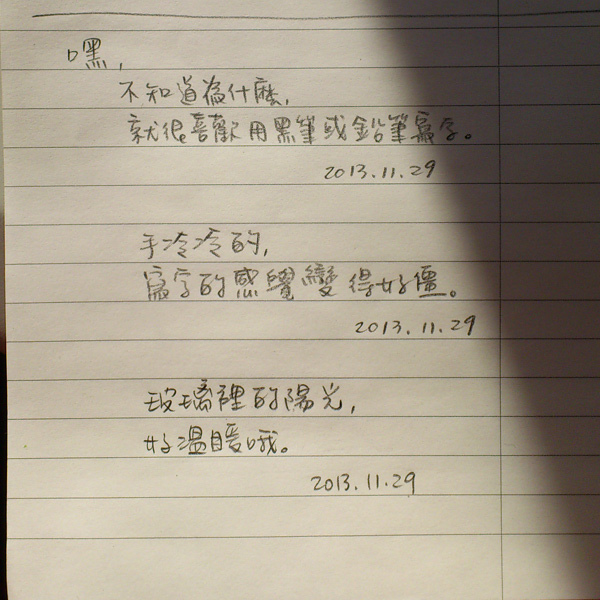 嘿,
不知道為什麼,
就很喜歡用黑筆或鉛筆寫字。
2013.11.29
手冷冷的,
寫字的感覺變得好僵。
2013.11.29
玻璃裡的陽光,
好溫暖哦。
2013.11.29